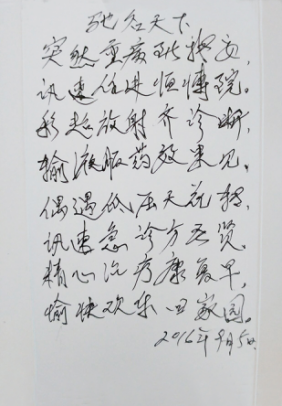 驰名天下
突然重感到挪安,
讯速住进恒博院。
彩超放射齐诊断,
输液服药效果见。
偶遇低压天花转,
讯速急诊方无贤。
精心治疗康复早,
愉快欢乐回家园。
2016年9月5日